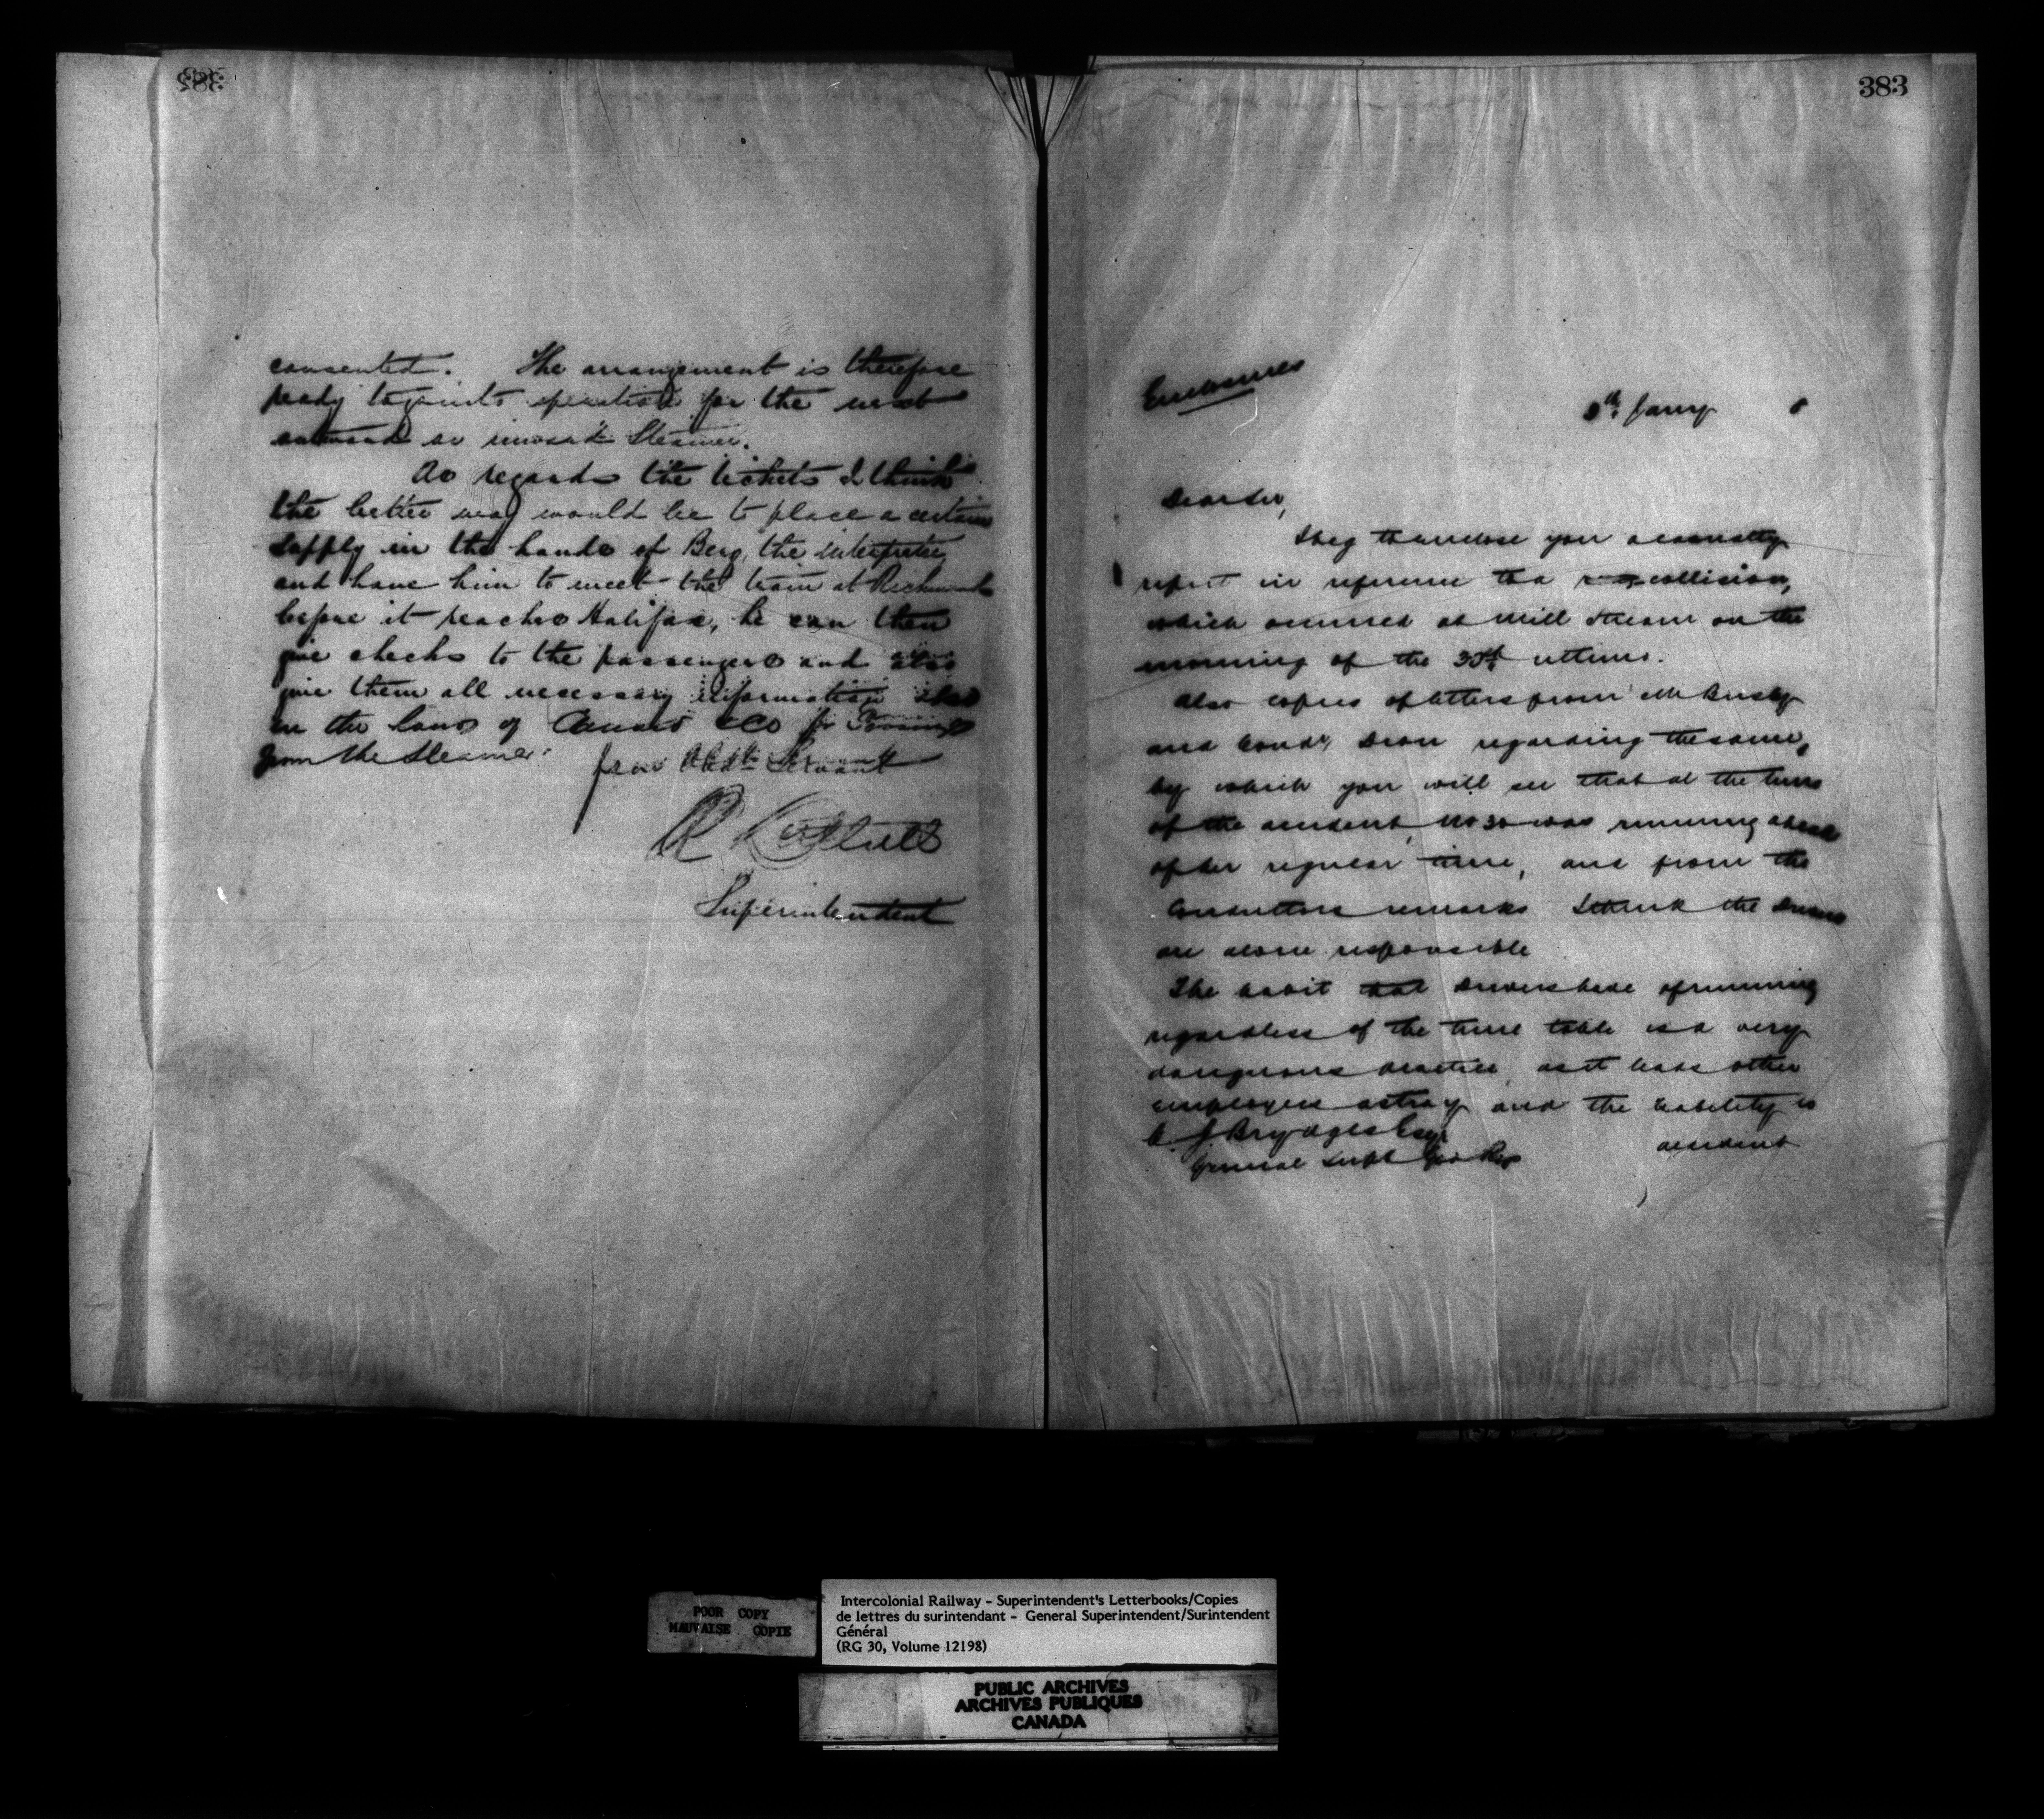 consented. The arrangement is therefore
ready to go into operation for the next
outward or inward Steamer.
As regards the tickets I think
the better way would be to place a certain
supply in the hands of Berg, the interpreter
and have him to meet the train at Richmond
before it reaches Halifax, he can then
give checks to the passengers and also
give them all necessary information
in the of Cunard & Co for
from the Steamer.
Your Obdt Servant
R
Superintendent
383
Enclosures
8th Jany
Dear Sir,
I beg to enclose you a casualty
report in reference to a collision,
which occurred at Mill Stream on the
morning of the 30th ultimo.
Also copies of letters from Mr Busby
and Condr regarding the same,
by which you will see that at the time
of the accident, No 30 was running ahead
of her regular time, and from the
Conductors remarks I think the Drivers
are alone responsible
The habit that Drivers have of running
regardless of the time table is a very
dangerous practice, as it leads other
employees astray and the liability to
accident
C J Brydges Esqr
General Supt Gov Rys
POOR COPY
MAUVAISE COPIE
Intercolonial Railway - Superintendent's Letterbooks/Copies
de lettres du surintendant - General Superintendent/Surintendent
Général
(RG 30, Volume 12198)
PUBLIC ARCHIVES
ARCHIVES PUBLIQUES
CANADA